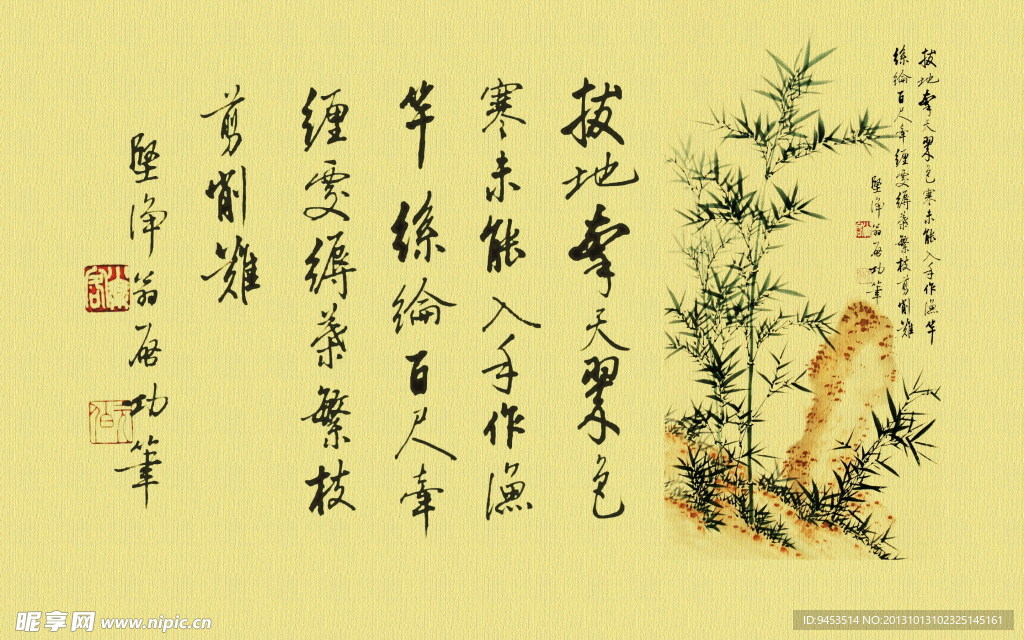 拔地參天翠色
寒未能入手作漁
竿絲綸百尺牽
纏處縟葉繁枝
翦削難
堅净翁啟功筆
拔地參天翠色寒未能入手作漁竿
絲綸百尺牽纏處縟葉繁枝翦削難
堅净翁啟功筆
昵享网 www.nipic.cn
ID:9453514 NO:20131013102325145161